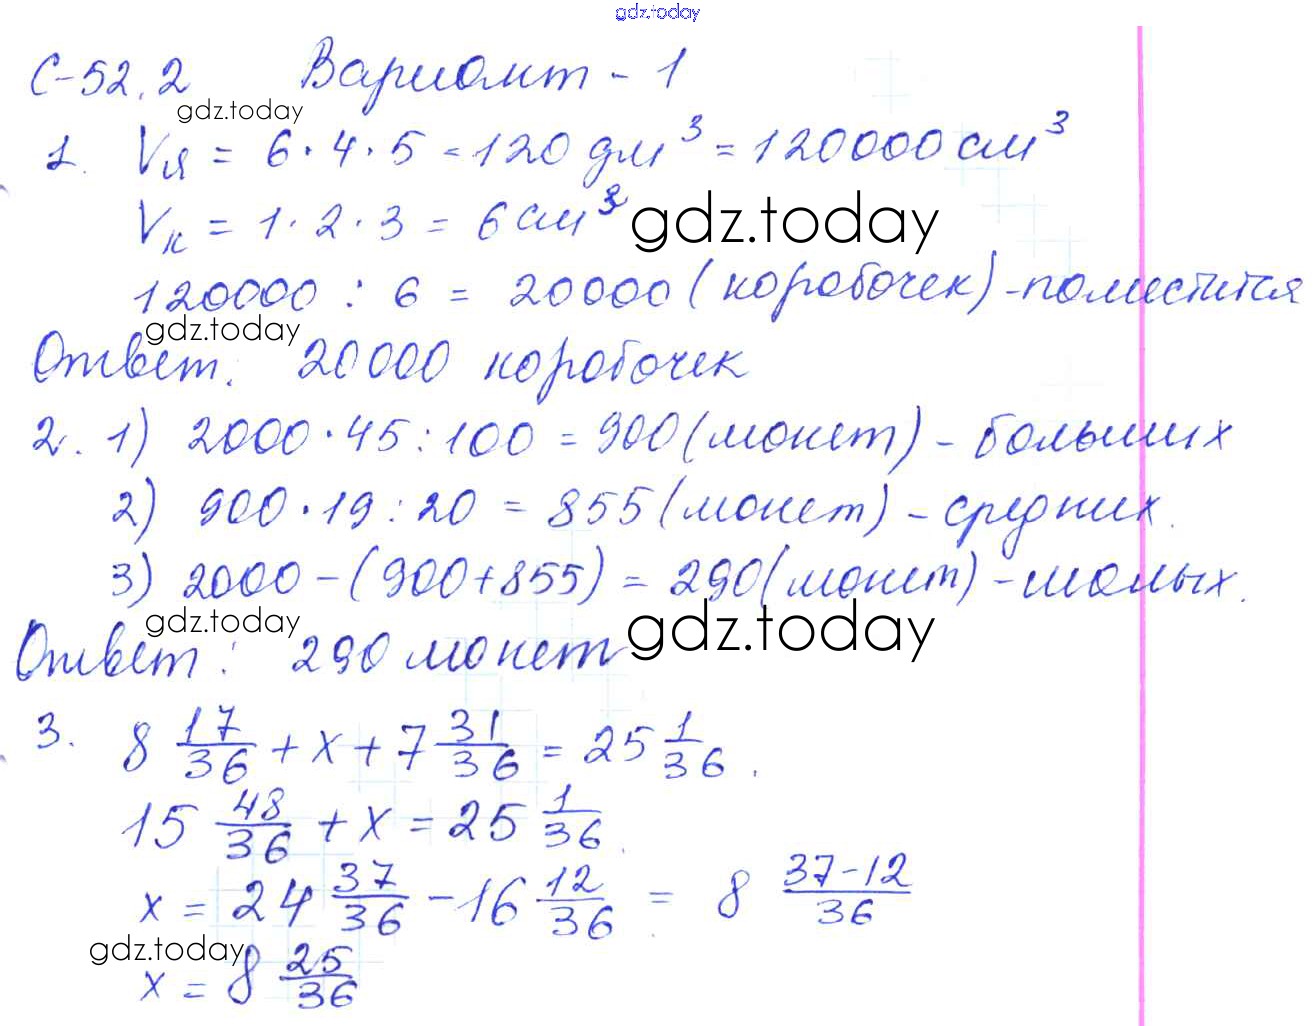 gdz.today
С-52.2 Вариант - 1
gdz.today
1. Vя = 6 · 4 · 5 = 120 дм³ = 120000 см³
Vк = 1 · 2 · 3 = 6 см³ gdz.today
120000 : 6 = 20000 (коробочек) - поместится
gdz.today
Ответ: 20000 коробочек
2. 1) 2000 · 45 : 100 = 900 (монет) - больших
2) 900 · 19 : 20 = 855 (монет) - средних.
3) 2000 - (900 + 855) = 290 (монет) - малых.
gdz.today gdz.today
Ответ: 290 монет
3. 8 17/36 + x + 7 31/36 = 25 1/36.
15 48/36 + x = 25 1/36.
x = 24 37/36 - 16 12/36 = 8 37-12/36
gdz.today
x = 8 25/36